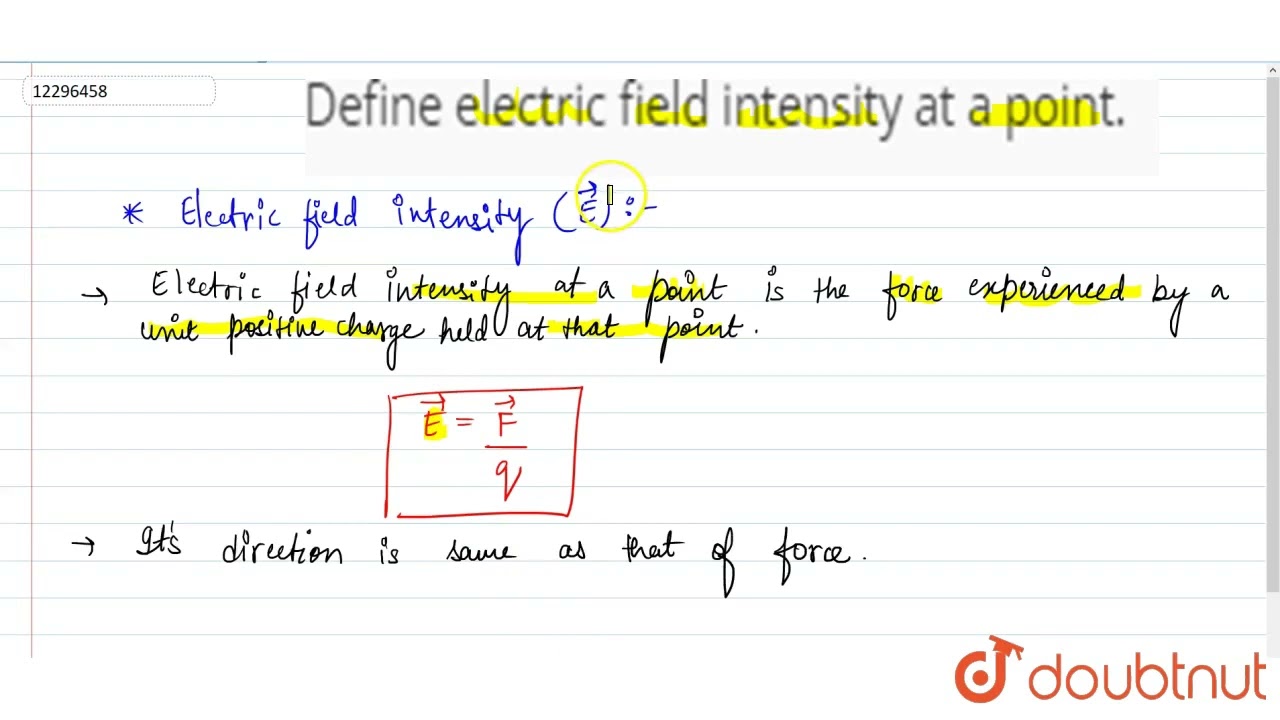 12296458
Define electric field intensity at a point.
* Electric field intensity (E⃗) :-
→ Electric field intensity at a point is the force experienced by a
unit positive charge held at that point.
E⃗ = F⃗
q
→ It's direction is same as that of force.
doubtnut